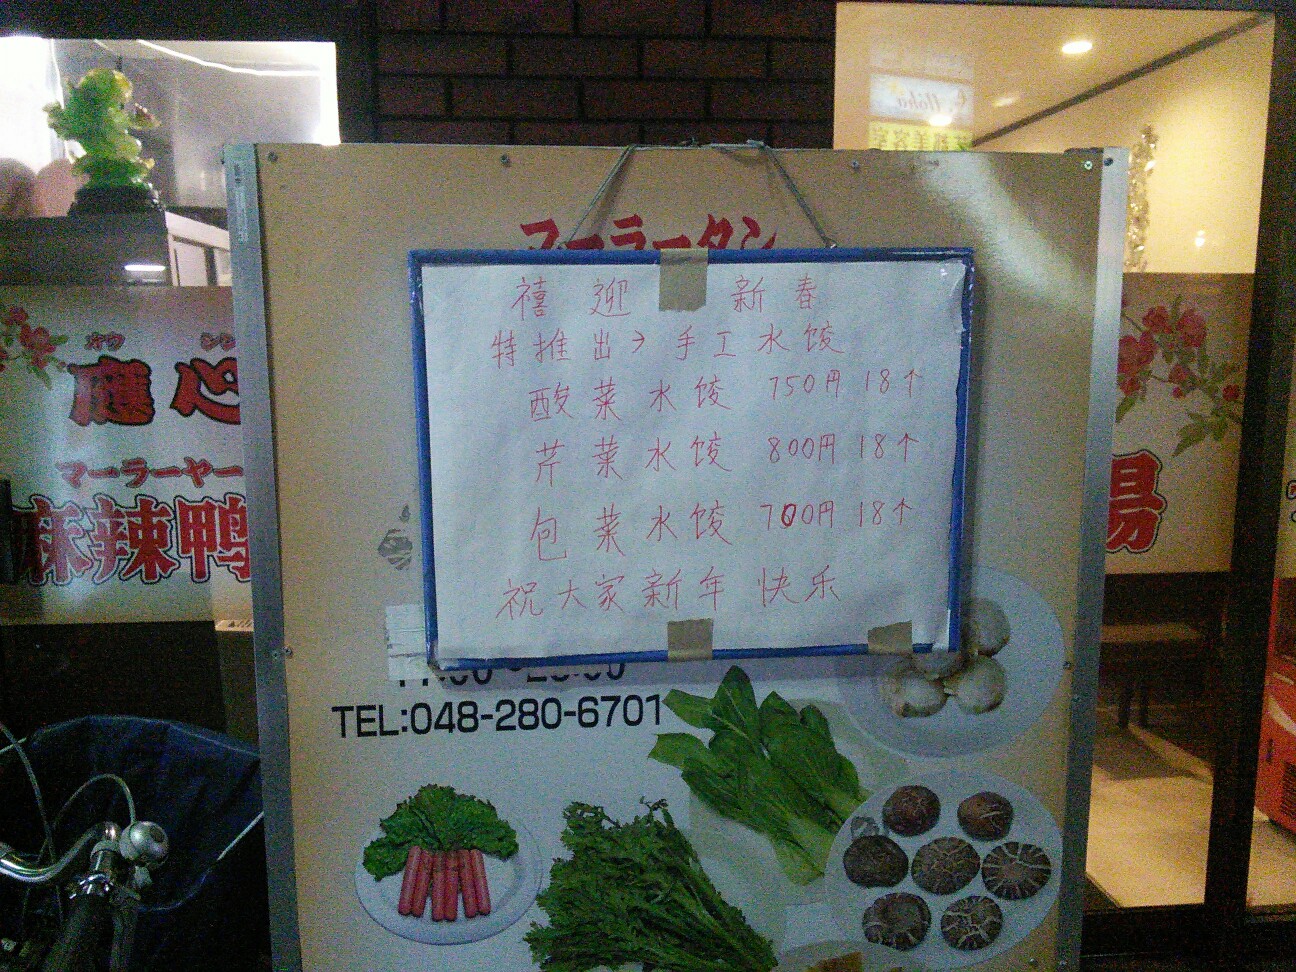 マーラータン
禧迎 新春
特推出→手工水饺
酸菜水饺 750円 18个
芹菜水饺 800円 18个
包菜水饺 700円 18个
祝大家新年快乐
TEL:048-280-6701
オウ シン
應心
マーラーヤー
麻辣鴨
湯